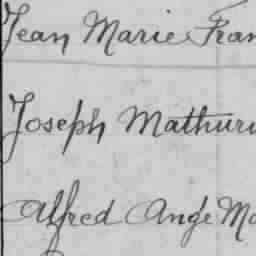 Jean Marie Fran
Joseph Mathuri
Alfred Ange Ma